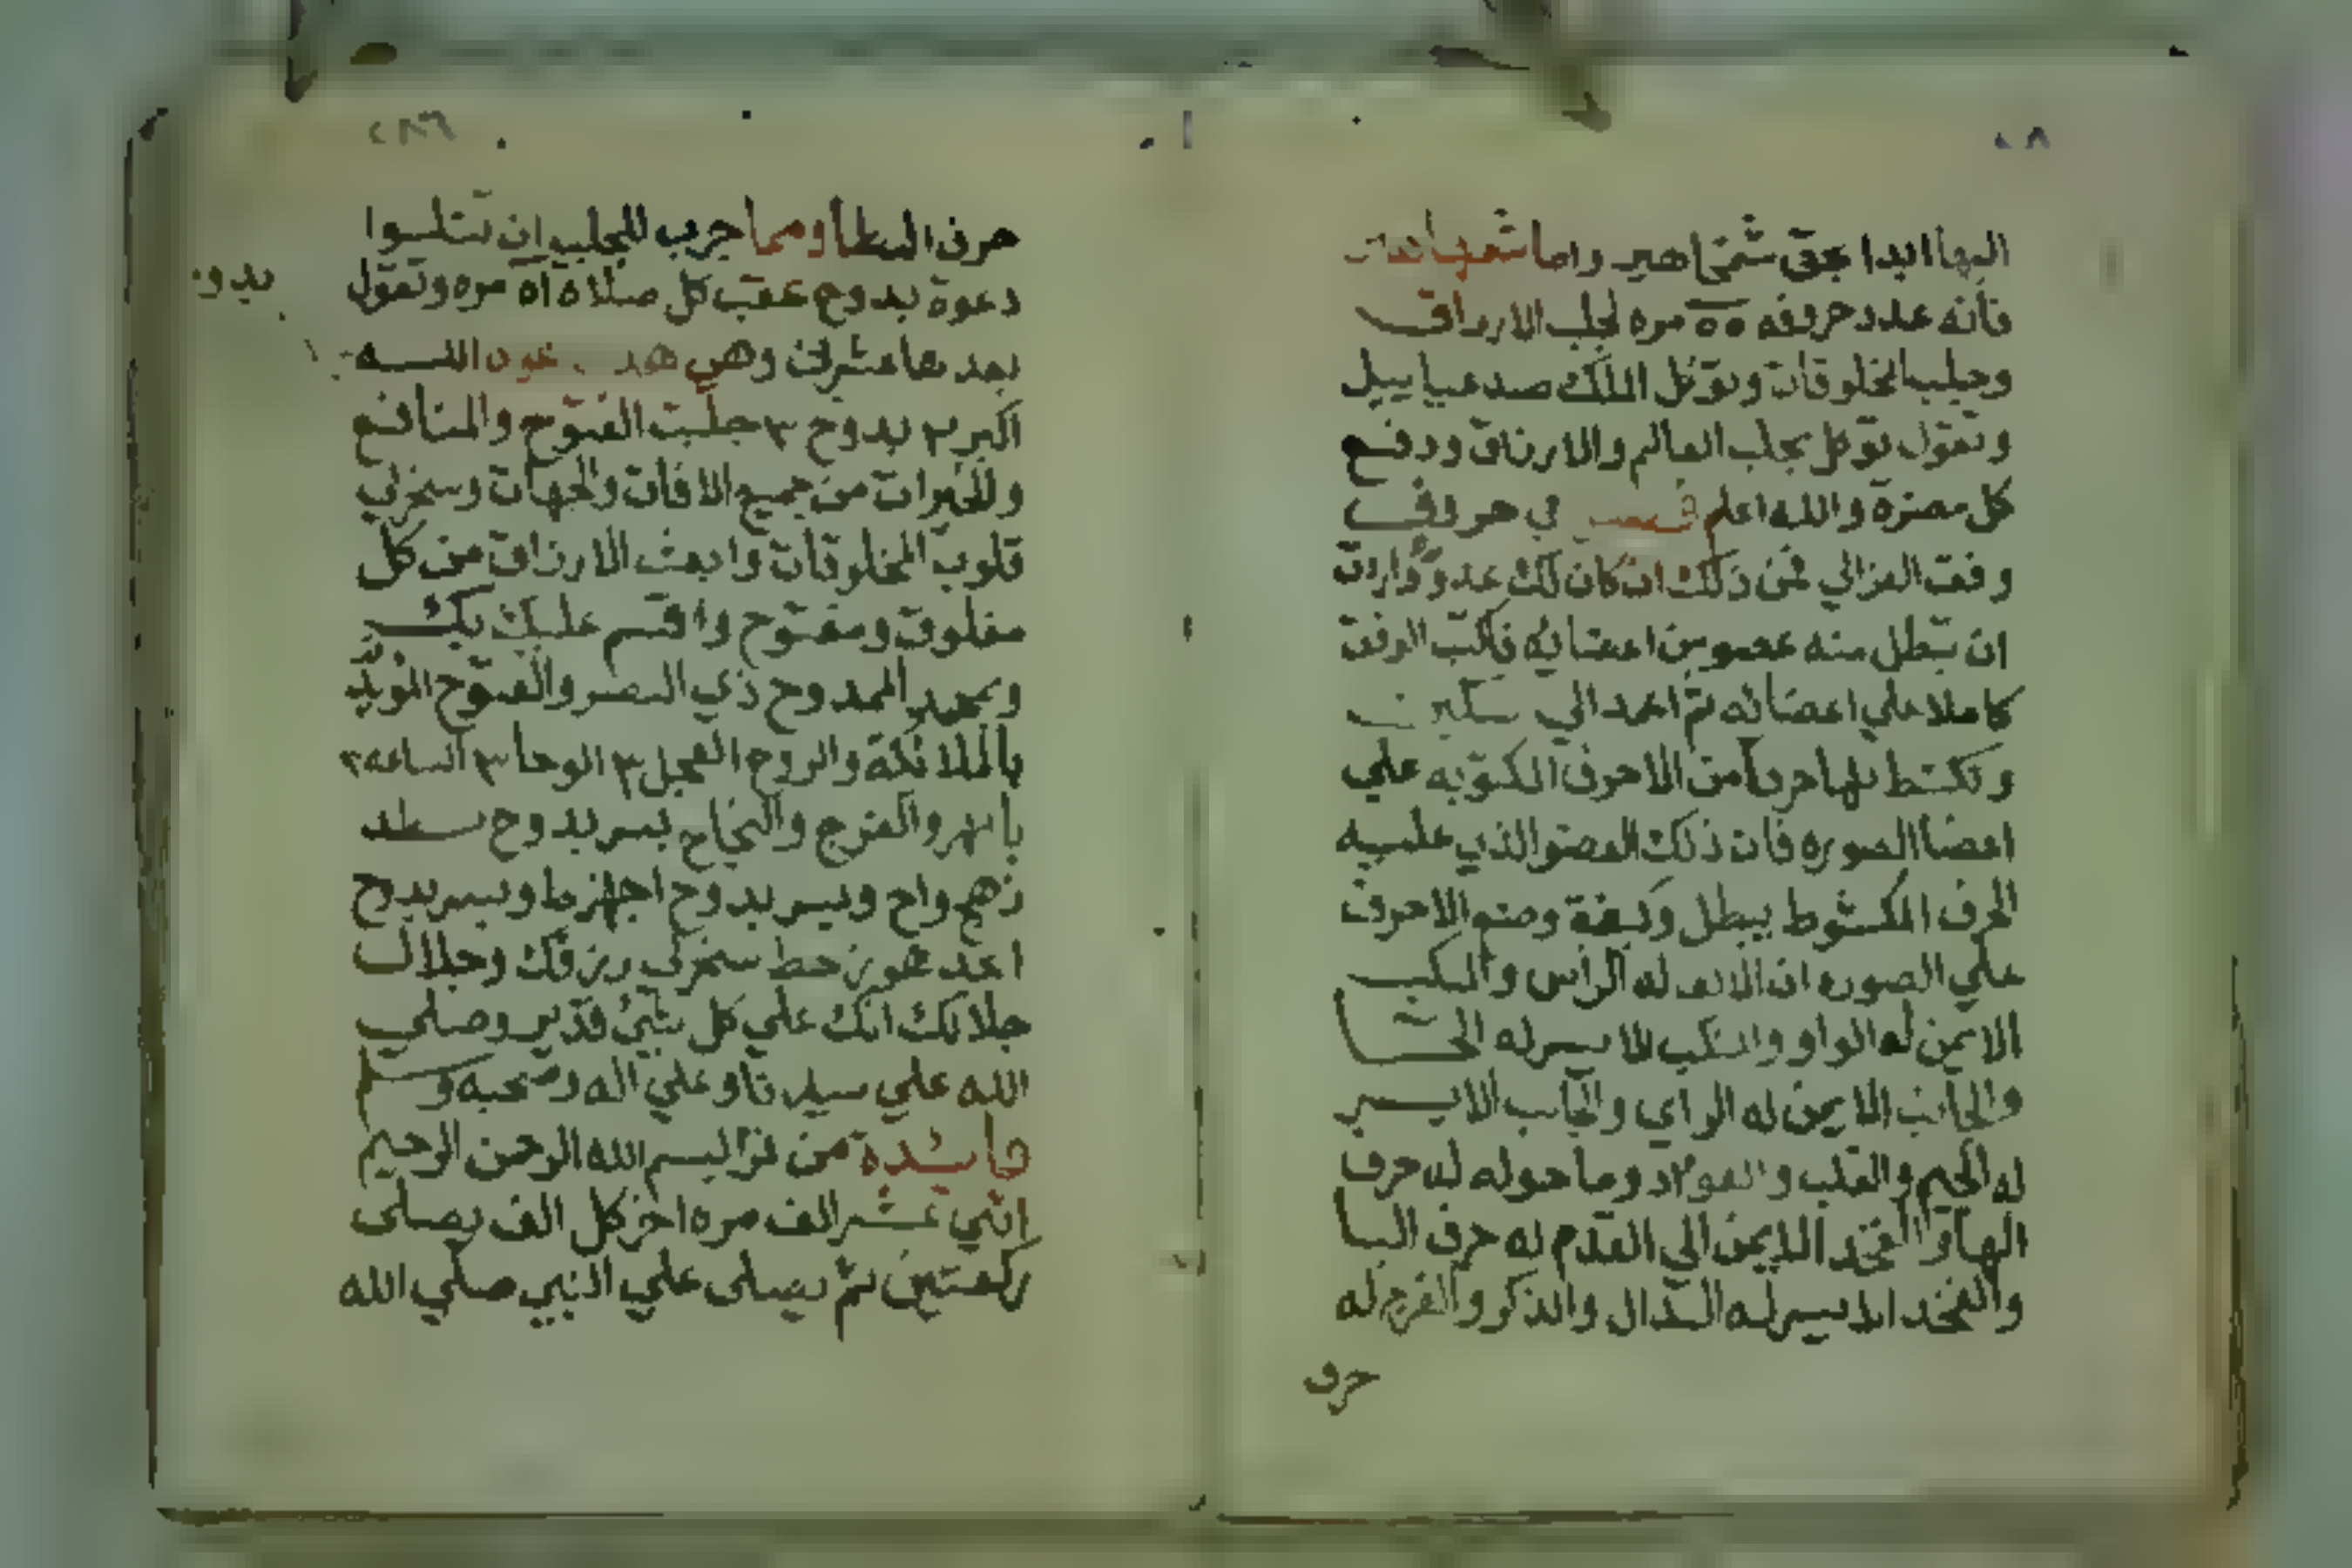 اليها ابدا بحق شمخاهير واما شمهاهت
فانه عدد حروفه ٥٥ مره لجلب الارزاق
وجلب المخلوقات وتوكل الملك صدعياييل
وتقول توكل بجلب العالم والارزاق ودفع
كل مضرة والله اعلم في حروف
وفق الغزالي فمن ذلك ان كان لك عدو واردت
ان تبطل منه عضو من اعضائه فاكتب الوفق
كاملا علي اعضائه ثم اعمد الي سكين
وتكشط بها حرفا من الاحرف المكتوبه علي
اعضا الصوره فان ذلك العضو الذي عليه
الحرف المكشوط يبطل وكيفة وضع الاحرف
علي الصوره ان الالف له الراس والمنكب
الايمن له الواو والمنكب الايسر له الحا
والجانب الايمن له الزاي والجانب الايسر
له الجيم والقلب والفواد وما حوله له حرف
الها والفخد الايمن الي القدم له حرف البا
والفخد الايسر له الدال والذكر والفرج له
حرف
حرف الطا ومما جرب للجلب ان تتلوا
دعوة بدوح عقب كل صلاة ٥١ مره وتقول
بدو
بعدها عشرين وهي هذه الله
اكبر ٣ بدوح ٣ جلبت الفتوح والمنافع
والخيرات من جميع الافات والجهات وسخر لي
قلوب المخلوقات وابعث الارزاق من كل
مغلوق ومفتوح واقسم عليك بكبير
وبمجيد الممدوح ذي النصر والفتوح المويد
بالملائكة والروح العجل ٣ الوحا ٣ الساعه ٢
بالنهر والفرج والنجاح بسر بدوح بطد
زهج واح وبسر بدوح اجهزط وبسر بدوح
سخر لي رزقك وجلال
جلالك انك علي كل شي قدير وصلي
الله علي سيدنا وعلي اله وصحبه وسلم
فايدة من قرا بسم الله الرحمن الرحيم
اثني عشر الف مره اخر كل الف يصلى
ركعتين ثم يصلى علي النبي صلي الله